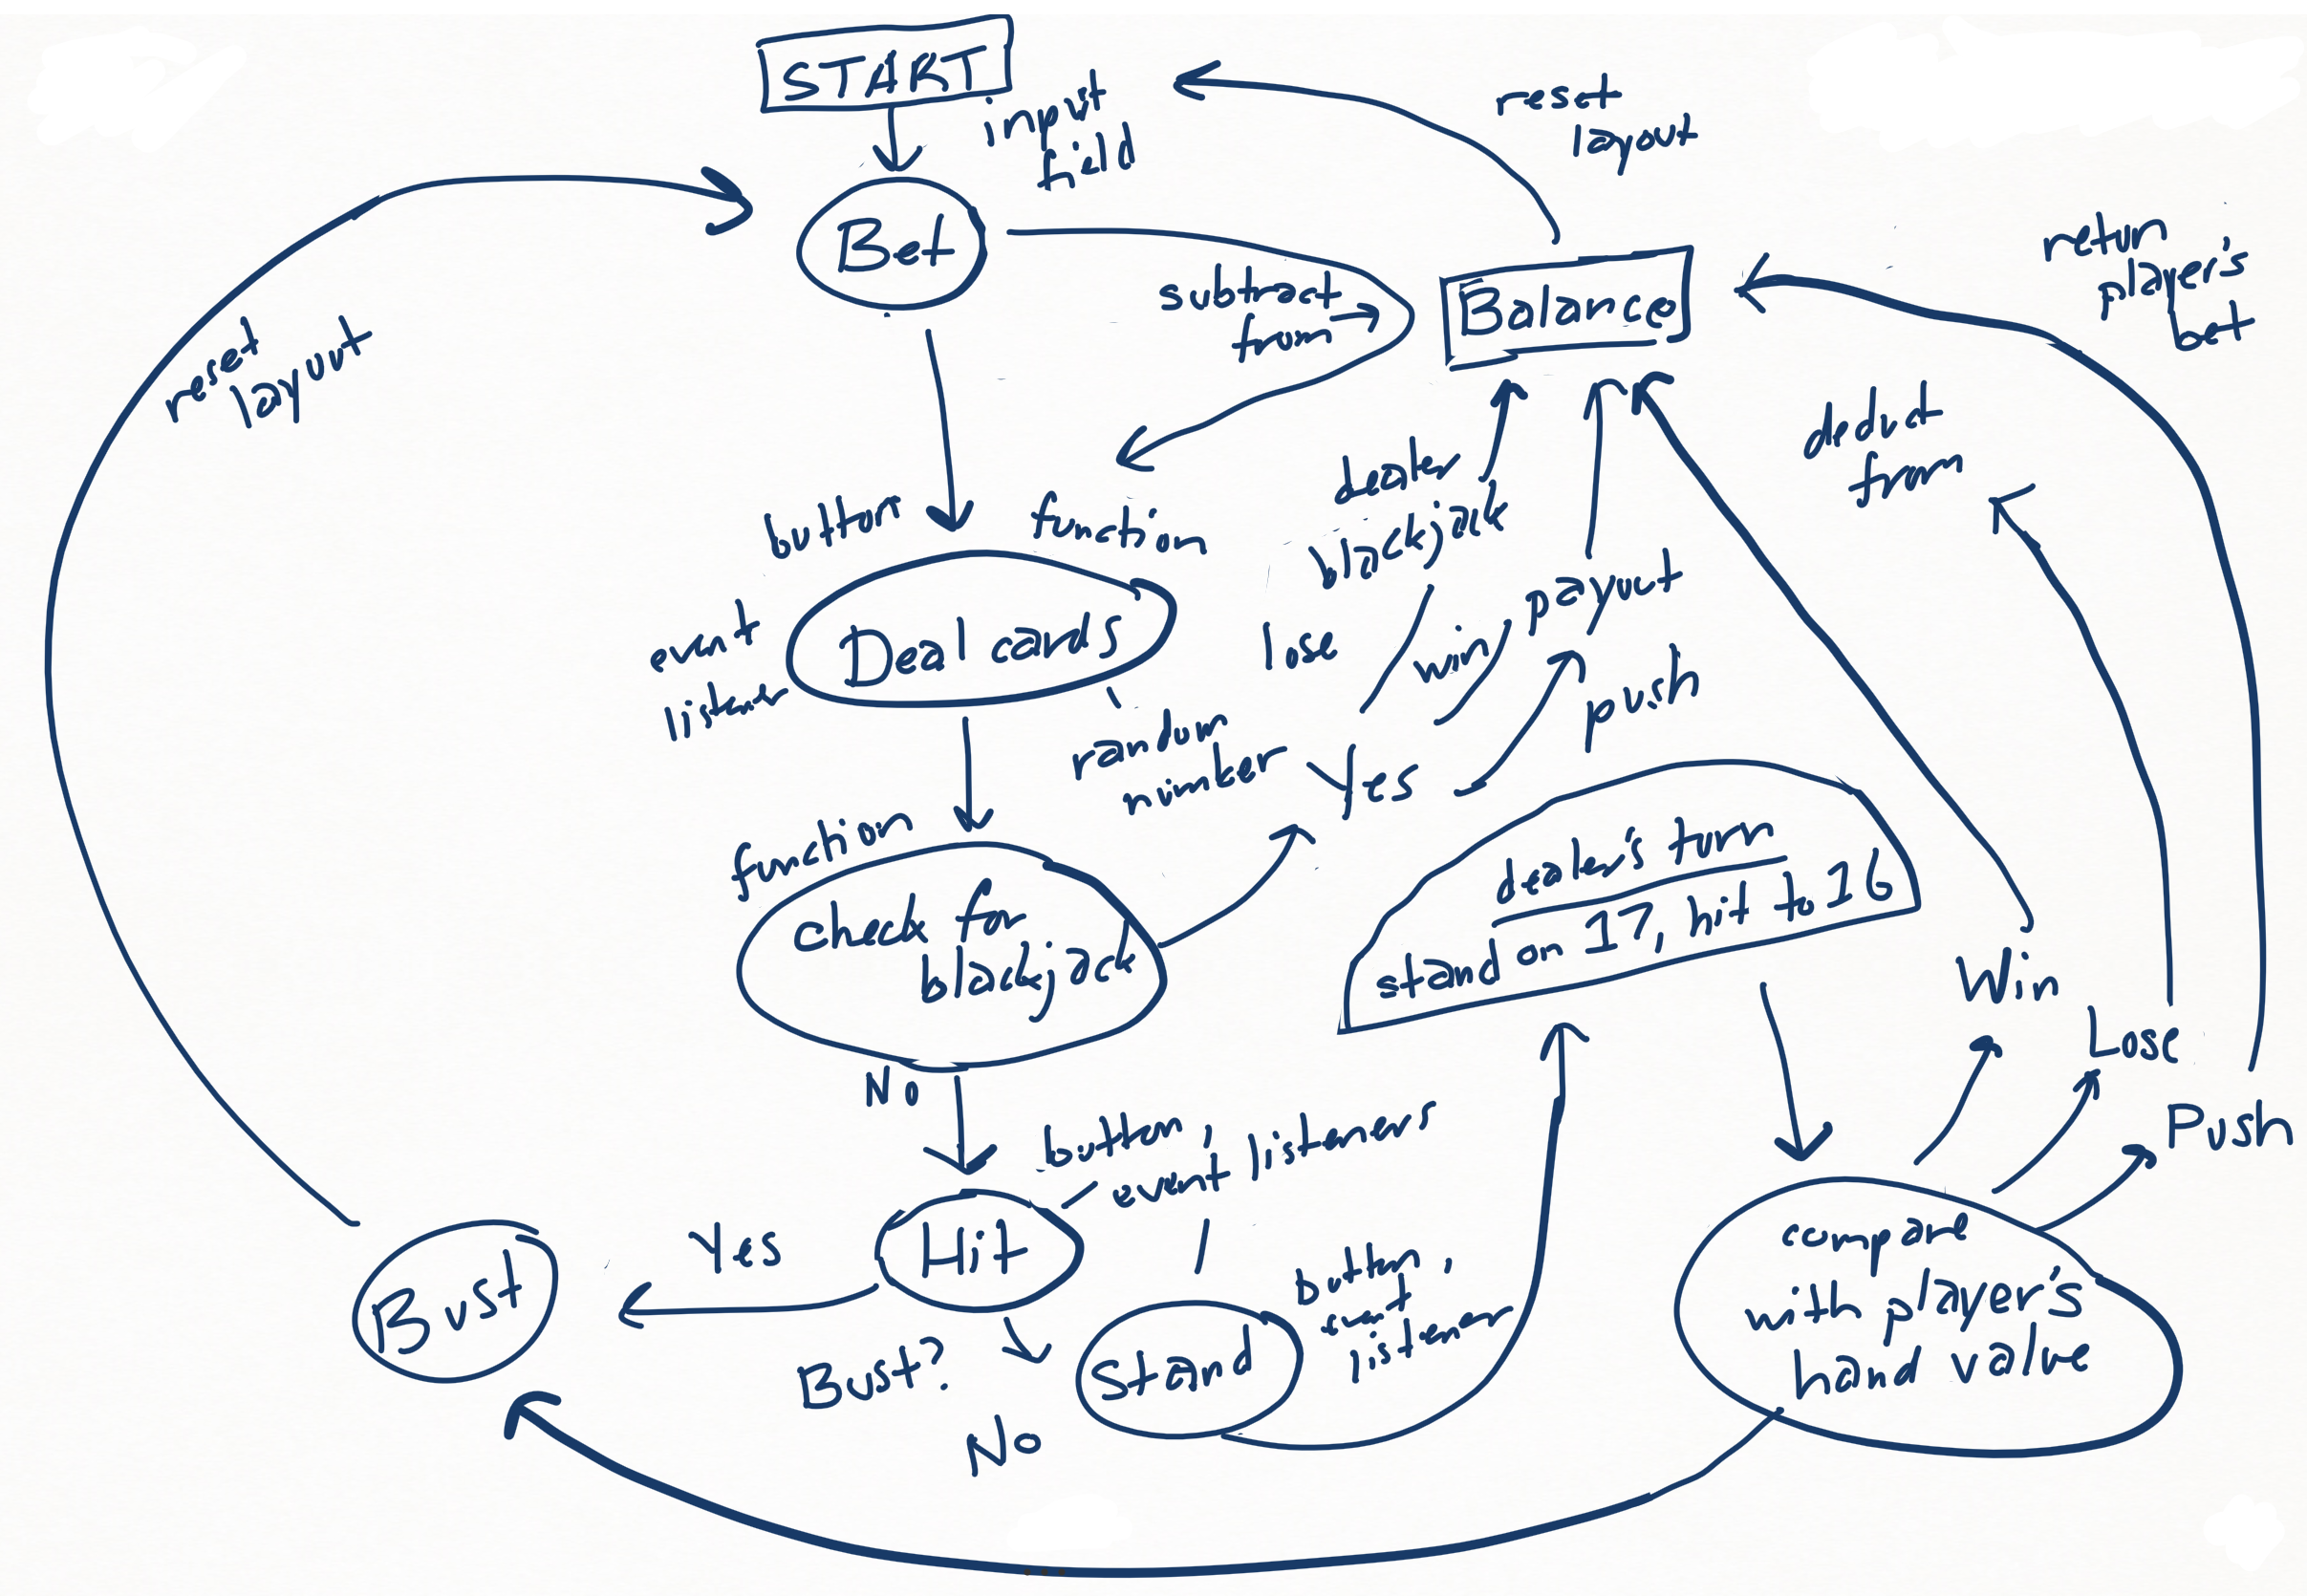 START
input
field
Bet
reset
layout
Balance
subtract
from
return
player's
bet
reset
layout
deduct
from
button
function
event
listener
Deal cards
random
number
dealer
blackjack
lose
win
payout
push
Yes
function
check for
blackjack
No
dealer's turn
stand on 17, hit to 16
Win
Lose
Push
button,
event listeners
Hit
Yes
Bust
Bust?
No
Stand
button,
event
listener
compare
with player's
hand value